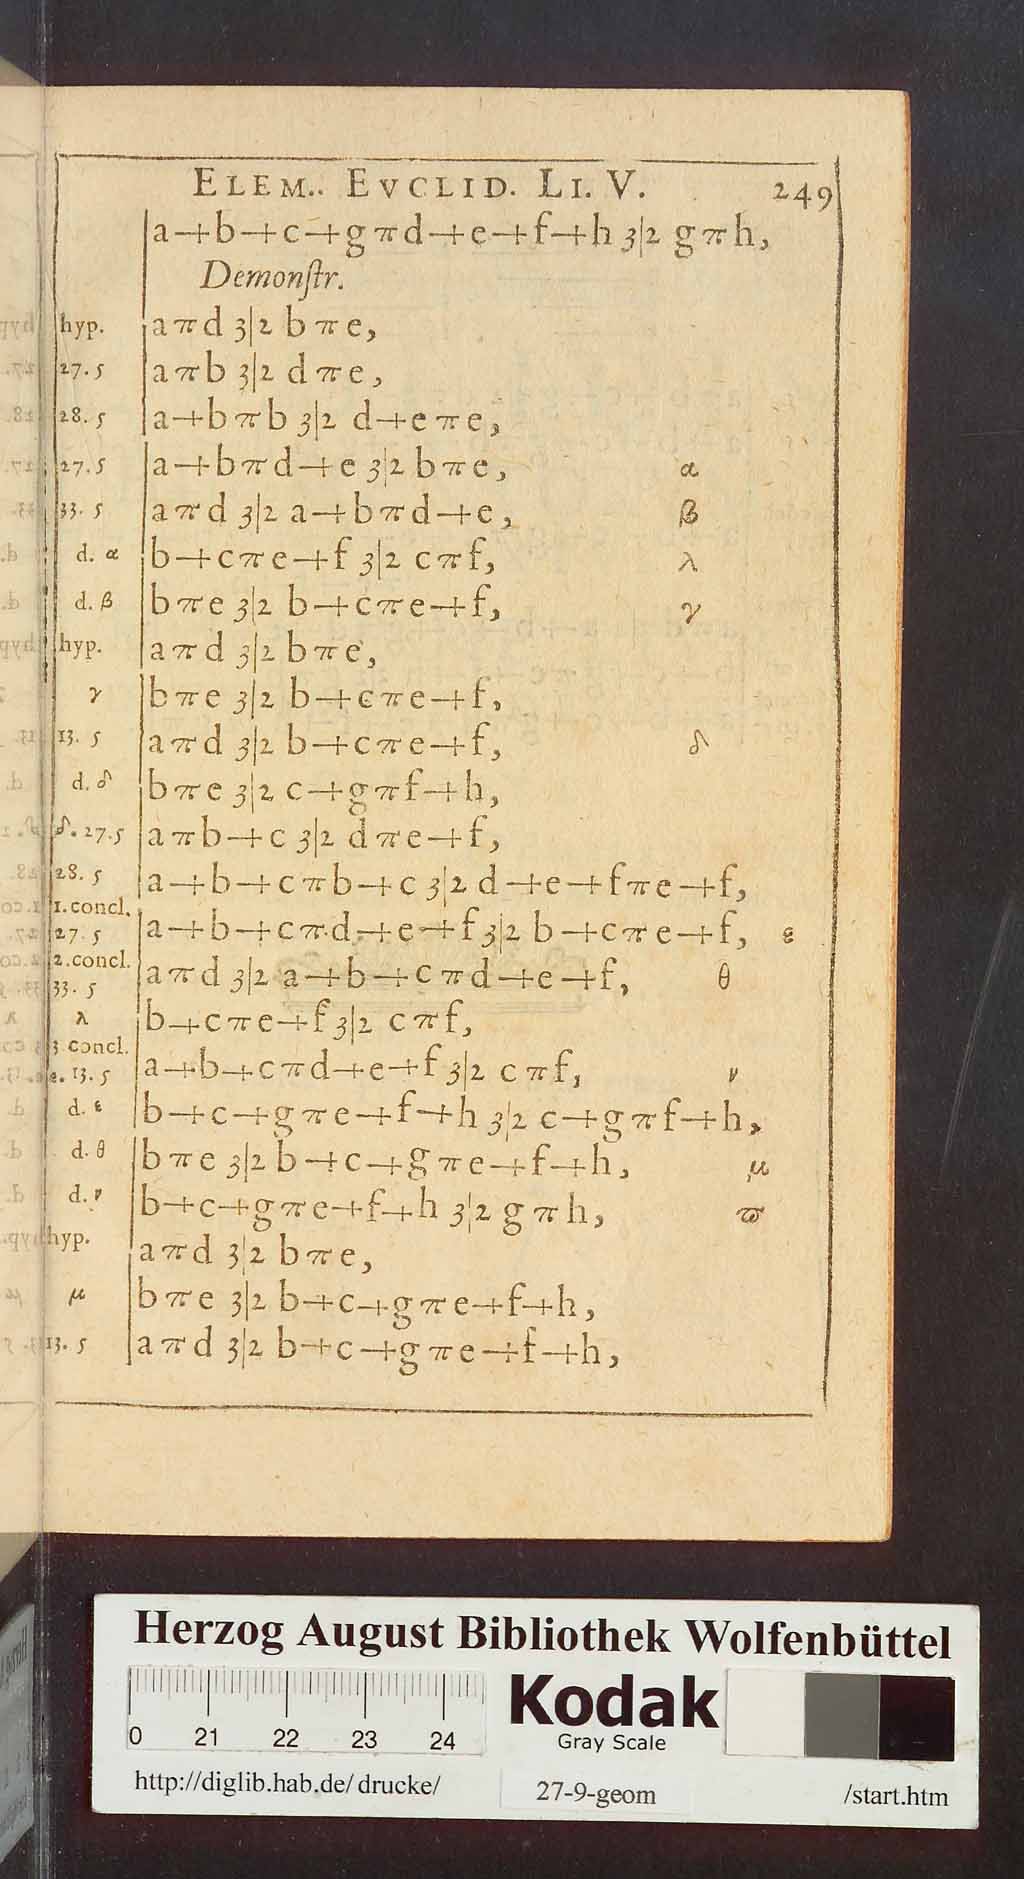 ELEM.. EVCLID. LI. V. 249
a+b+c+g π d+e+f+h 3|2 g π h,
Demonſtr.
hyp. a π d 3|2 b π e,
27. 5 a π b 3|2 d π e,
28. 5 a+b π b 3|2 d+e π e,
27. 5 a+b π d+e 3|2 b π e, α
33. 5 a π d 3|2 a+b π d+e, β
d. α b+c π e+f 3|2 c π f, λ
d. β b π e 3|2 b+c π e+f, γ
hyp. a π d 3|2 b π e,
γ b π e 3|2 b+c π e+f,
13. 5 a π d 3|2 b+c π e+f, δ
d. δ b π e 3|2 c+g π f+h,
δ. 27. 5 a π b+c 3|2 d π e+f,
28. 5 a+b+c π b+c 3|2 d+e+f π e+f,
1. concl.
27. 5 a+b+c π d+e+f 3|2 b+c π e+f, ε
2. concl.
33. 5 a π d 3|2 a+b+c π d+e+f, θ
λ b+c π e+f 3|2 c π f,
3 concl.
ε. 13. 5 a+b+c π d+e+f 3|2 c π f, ν
d. ε b+c+g π e+f+h 3|2 c+g π f+h,
d. θ b π e 3|2 b+c+g π e+f+h, μ
d. ν b+c+g π e+f+h 3|2 g π h, ϖ
hyp. a π d 3|2 b π e,
μ b π e 3|2 b+c+g π e+f+h,
13. 5 a π d 3|2 b+c+g π e+f+h,
Herzog August Bibliothek Wolfenbüttel
0 21 22 23 24
Kodak
Gray Scale
http://diglib.hab.de/ drucke/ 27-9-geom /start.htm